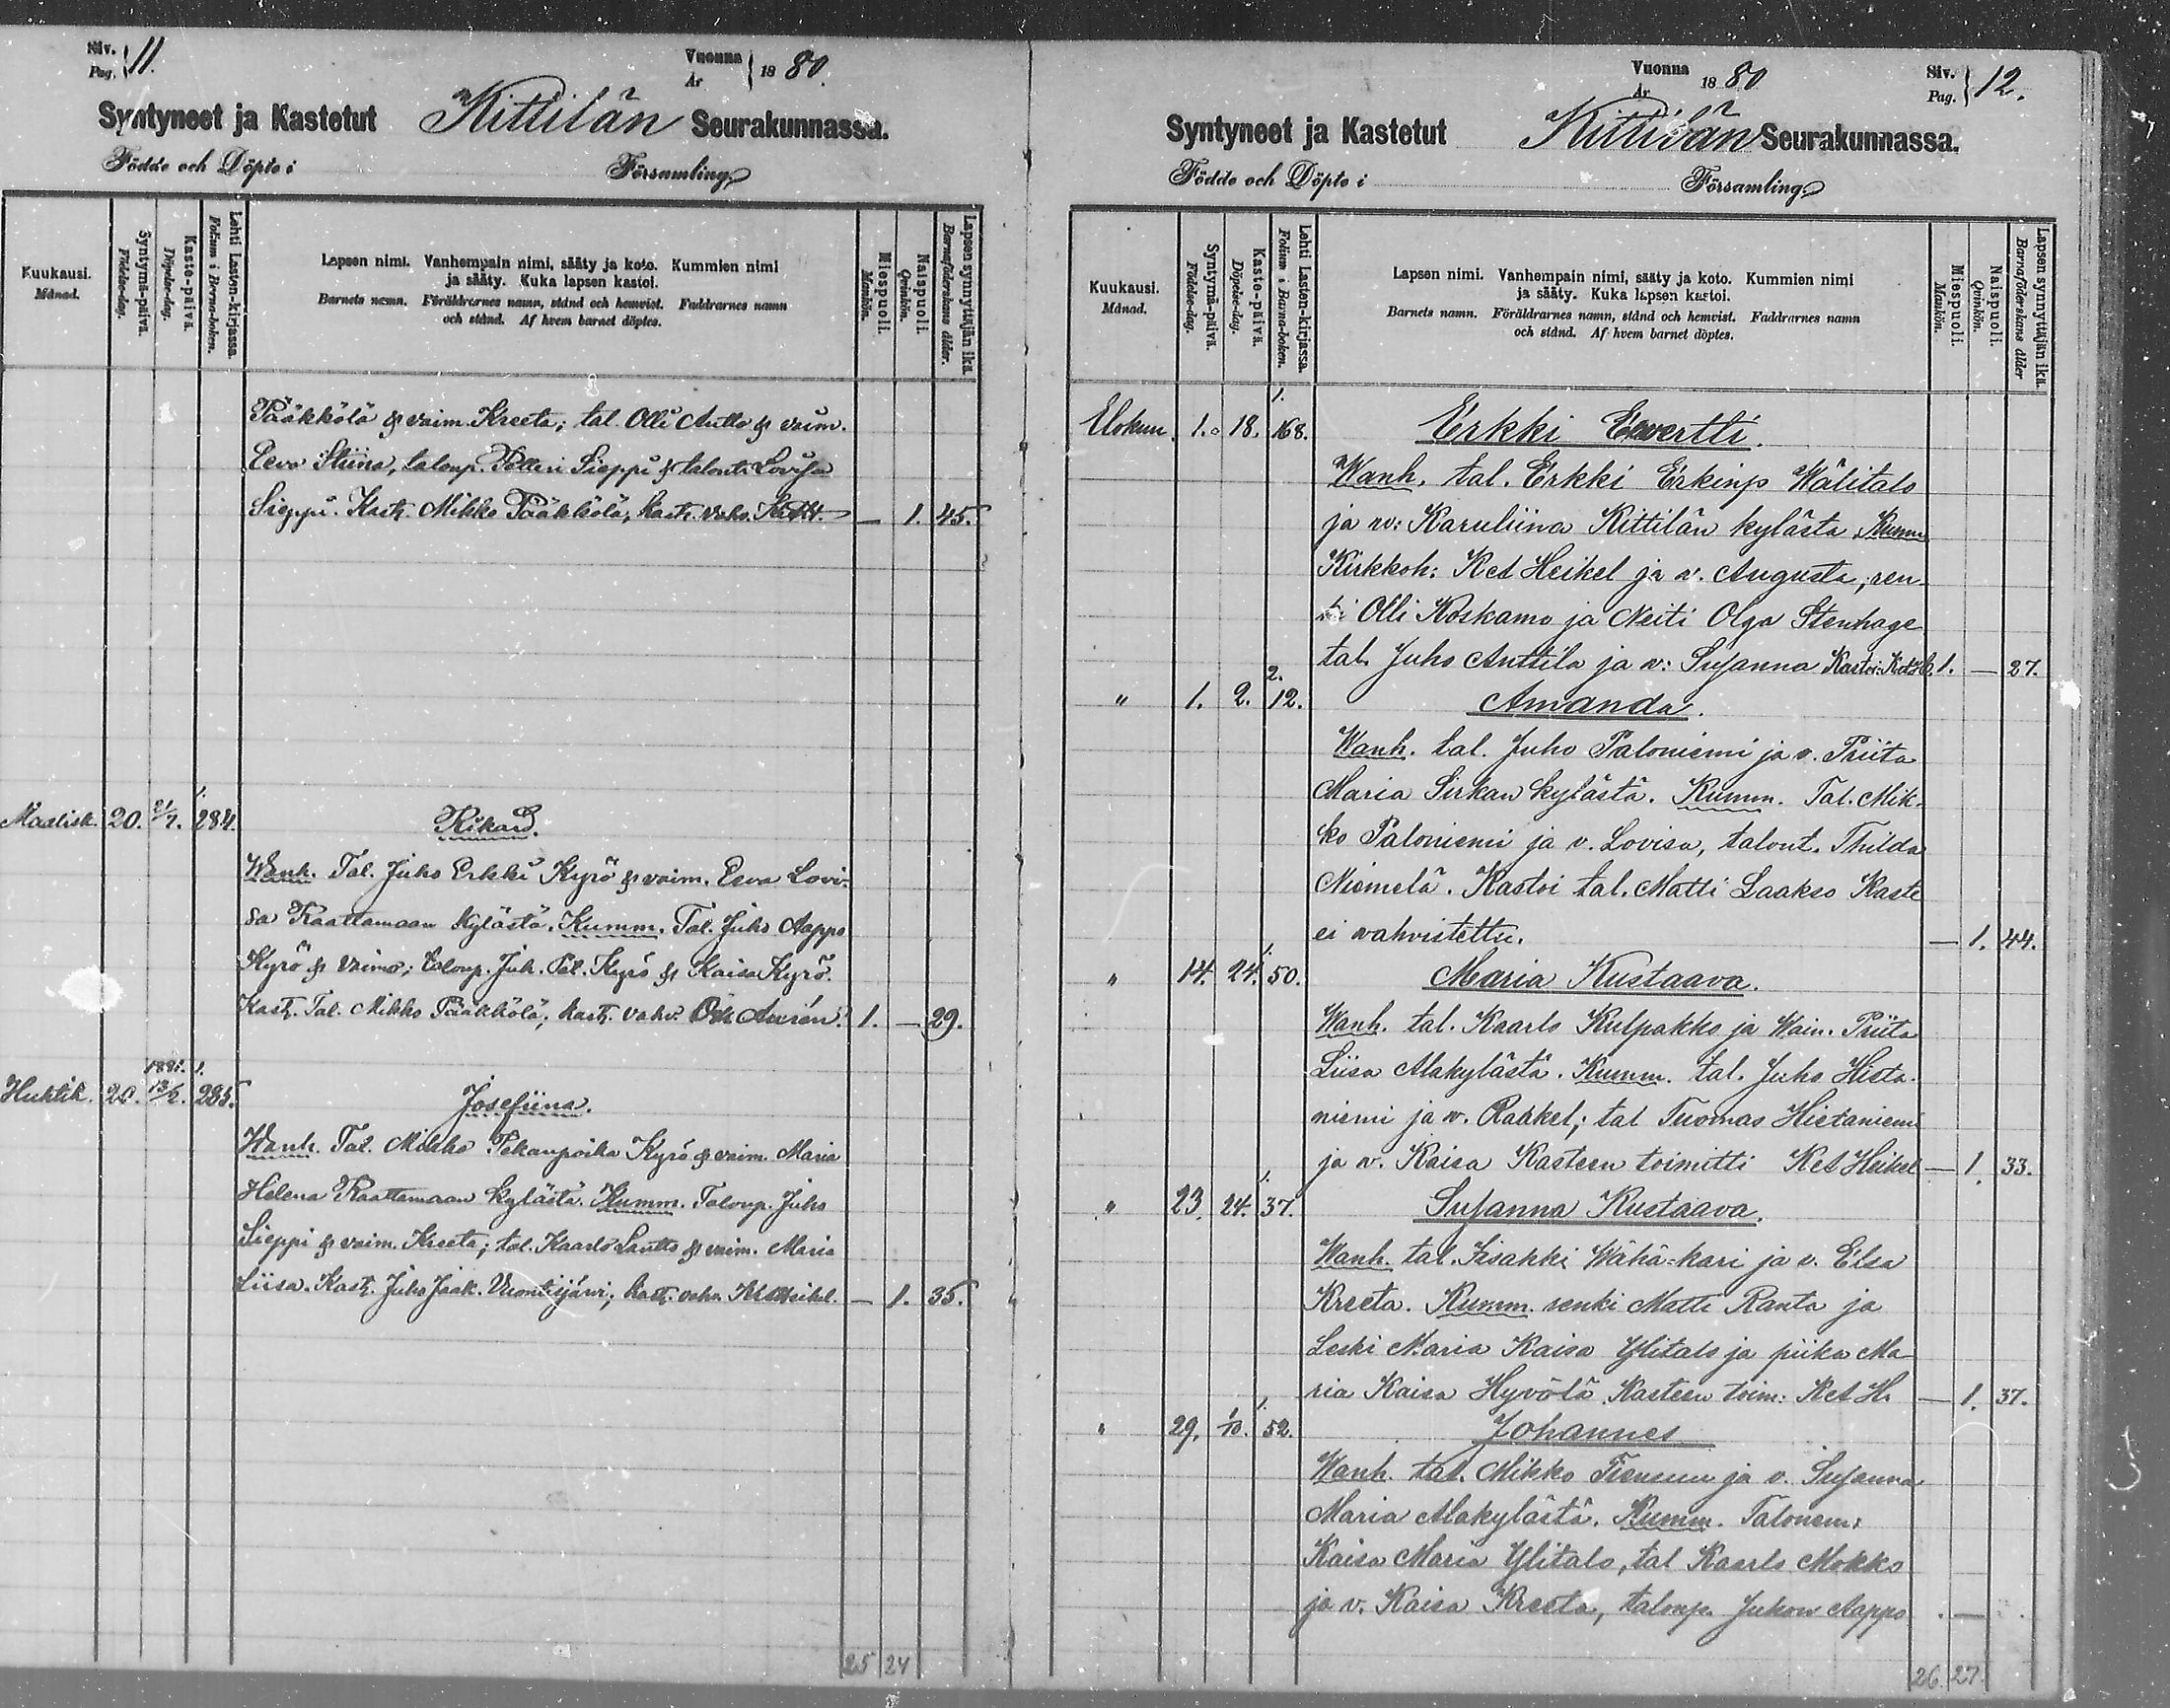 Siv. Pag. 11.
Vuonna År 1880.
Syntyneet ja Kastetut Kittilän Seurakunnassa.
Födde och Döpte i Församling.
Kuukausi. Månad.
Syntymä-päivä. Födelse-dag.
Kaste-päivä. Döpelse-dag.
Lehti Lasten-kirjassa. Folium i Barna-boken.
Lapsen nimi. Vanhempain nimi, sääty ja koto. Kummien nimi
ja sääty. Kuka lapsen kastoi.
Barnets namn. Föräldrarnes namn, stånd och hemvist. Faddrarnes namn
och stånd. Af hvem barnet döptes.
Miespuoli. Mankön.
Naispuoli. Qvinkön.
Lapsen synnyttäjän ikä. Barnaföderskans ålder.
Pääkkölä & vaim. Kreeta; tal. Olli Autto & vaim.
Eeva Stiina, taloup. Petteri Sieppi & talont. Lovisa
Sieppi. Kast. Mikko Pääkkölä, kast. vahv. — 1. 45.
1.
Maalisk. 20. 21/7. 284. Rikard.
Wanh. Tal. Juho Erkki Kyrö & vaim. Eeva Lovi-
sa Raattamaan kylästä. Kumm. Tal. Juho Aappo
Kyrö & vaimo; taloup. Juh. Pet. Kyrö & Kaisa Kyrö.
Kast. Tal. Mikko Pääkkölä; kast. vahv. 1. — 29.
1881. 1.
Huhtik. 20. 13/2. 285. Josefiina.
Wanh. Tal. Mikko Pekanpoika Kyrö & vaim. Maria
Helena Raattamaan kylästä. Kumm. Taloup. Juho
Sieppi & vaim. Kreeta; tal. Kaarlo Lautto & vaim. Maria
Liisa. Kast. Juho Jaak. Vuontisjärvi; kast. vahv. Ket Heikel. — 1. 35.
25 24
Vuonna År 1880
Siv. Pag. 12.
Syntyneet ja Kastetut Kittilän Seurakunnassa.
Födde och Döpte i Församling.
Kuukausi. Månad.
Syntymä-päivä. Födelse-dag.
Kaste-päivä. Döpelse-dag.
Lehti Lasten-kirjassa. Folium i Barna-boken.
Lapsen nimi. Vanhempain nimi, sääty ja koto. Kummien nimi
ja sääty. Kuka lapsen kastoi.
Barnets namn. Föräldrarnes namn, stånd och hemvist. Faddrarnes namn
och stånd. Af hvem barnet döptes.
Miespuoli. Mankön.
Naispuoli. Qvinkön.
Lapsen synnyttäjän ikä. Barnaföderskans ålder
1.
Elokuu. 1. 18. 168. Erkki Ewertti.
Wanh. tal. Erkki Erkinp Wälitalo
ja w: Karuliina Kittilän kylästä Kumm
Kirkkoh: Ket Heikel ja w. Augusta, ren-
ki Olli Koskamo ja Neiti Olga Stenhage
tal. Juho Anttila ja w: Susanna Kastoi: 1. — 27.
2.
" 1. 2. 12. Amanda.
Wanh. tal. Juho Paloniemi ja v. Priita
Maria Sirkan kylästä. Kumm. Tal. Mik-
ko Paloniemi ja v. Lovisa, talont. Thilda
Niemelä. Kastoi tal. Matti Laakso Kaste
ei vahvistettu. — 1. 44.
1.
" 14. 24. 50. Maria Kustaava.
Wanh. tal. Kaarlo Kulpakko ja Waim. Priita
Liisa Alakylästä. Kumm. tal. Juho Hieta-
niemi ja w. Raakel; tal Tuomas Hietaniemi
ja w. Kaisa Kasteen toimitti Ket Heikel — 1. 33.
1.
" 23. 24. 37. Susanna Kustaava.
Wanh. tal. Iisakki Wähä-kari ja v. Elsa
Kreeta. Kumm. renki Matti Ranta ja
Leski Maria Kaisa Ylitalo ja piika Ma-
ria Kaisa Hyvölä Kasteen toim: Ket H. — 1. 37.
1.
" 29. 1/10. 52. Johannes
Wanh. tal. Mikko Tiensuu ja v. Susanna
Maria Alakylästä. Kumm. Talonem:
Kaisa Maria Ylitalo, tal Kaarlo Mokko
ja v. Kaisa Kreeta, taloup. Juhon Aappo —
26. 27.